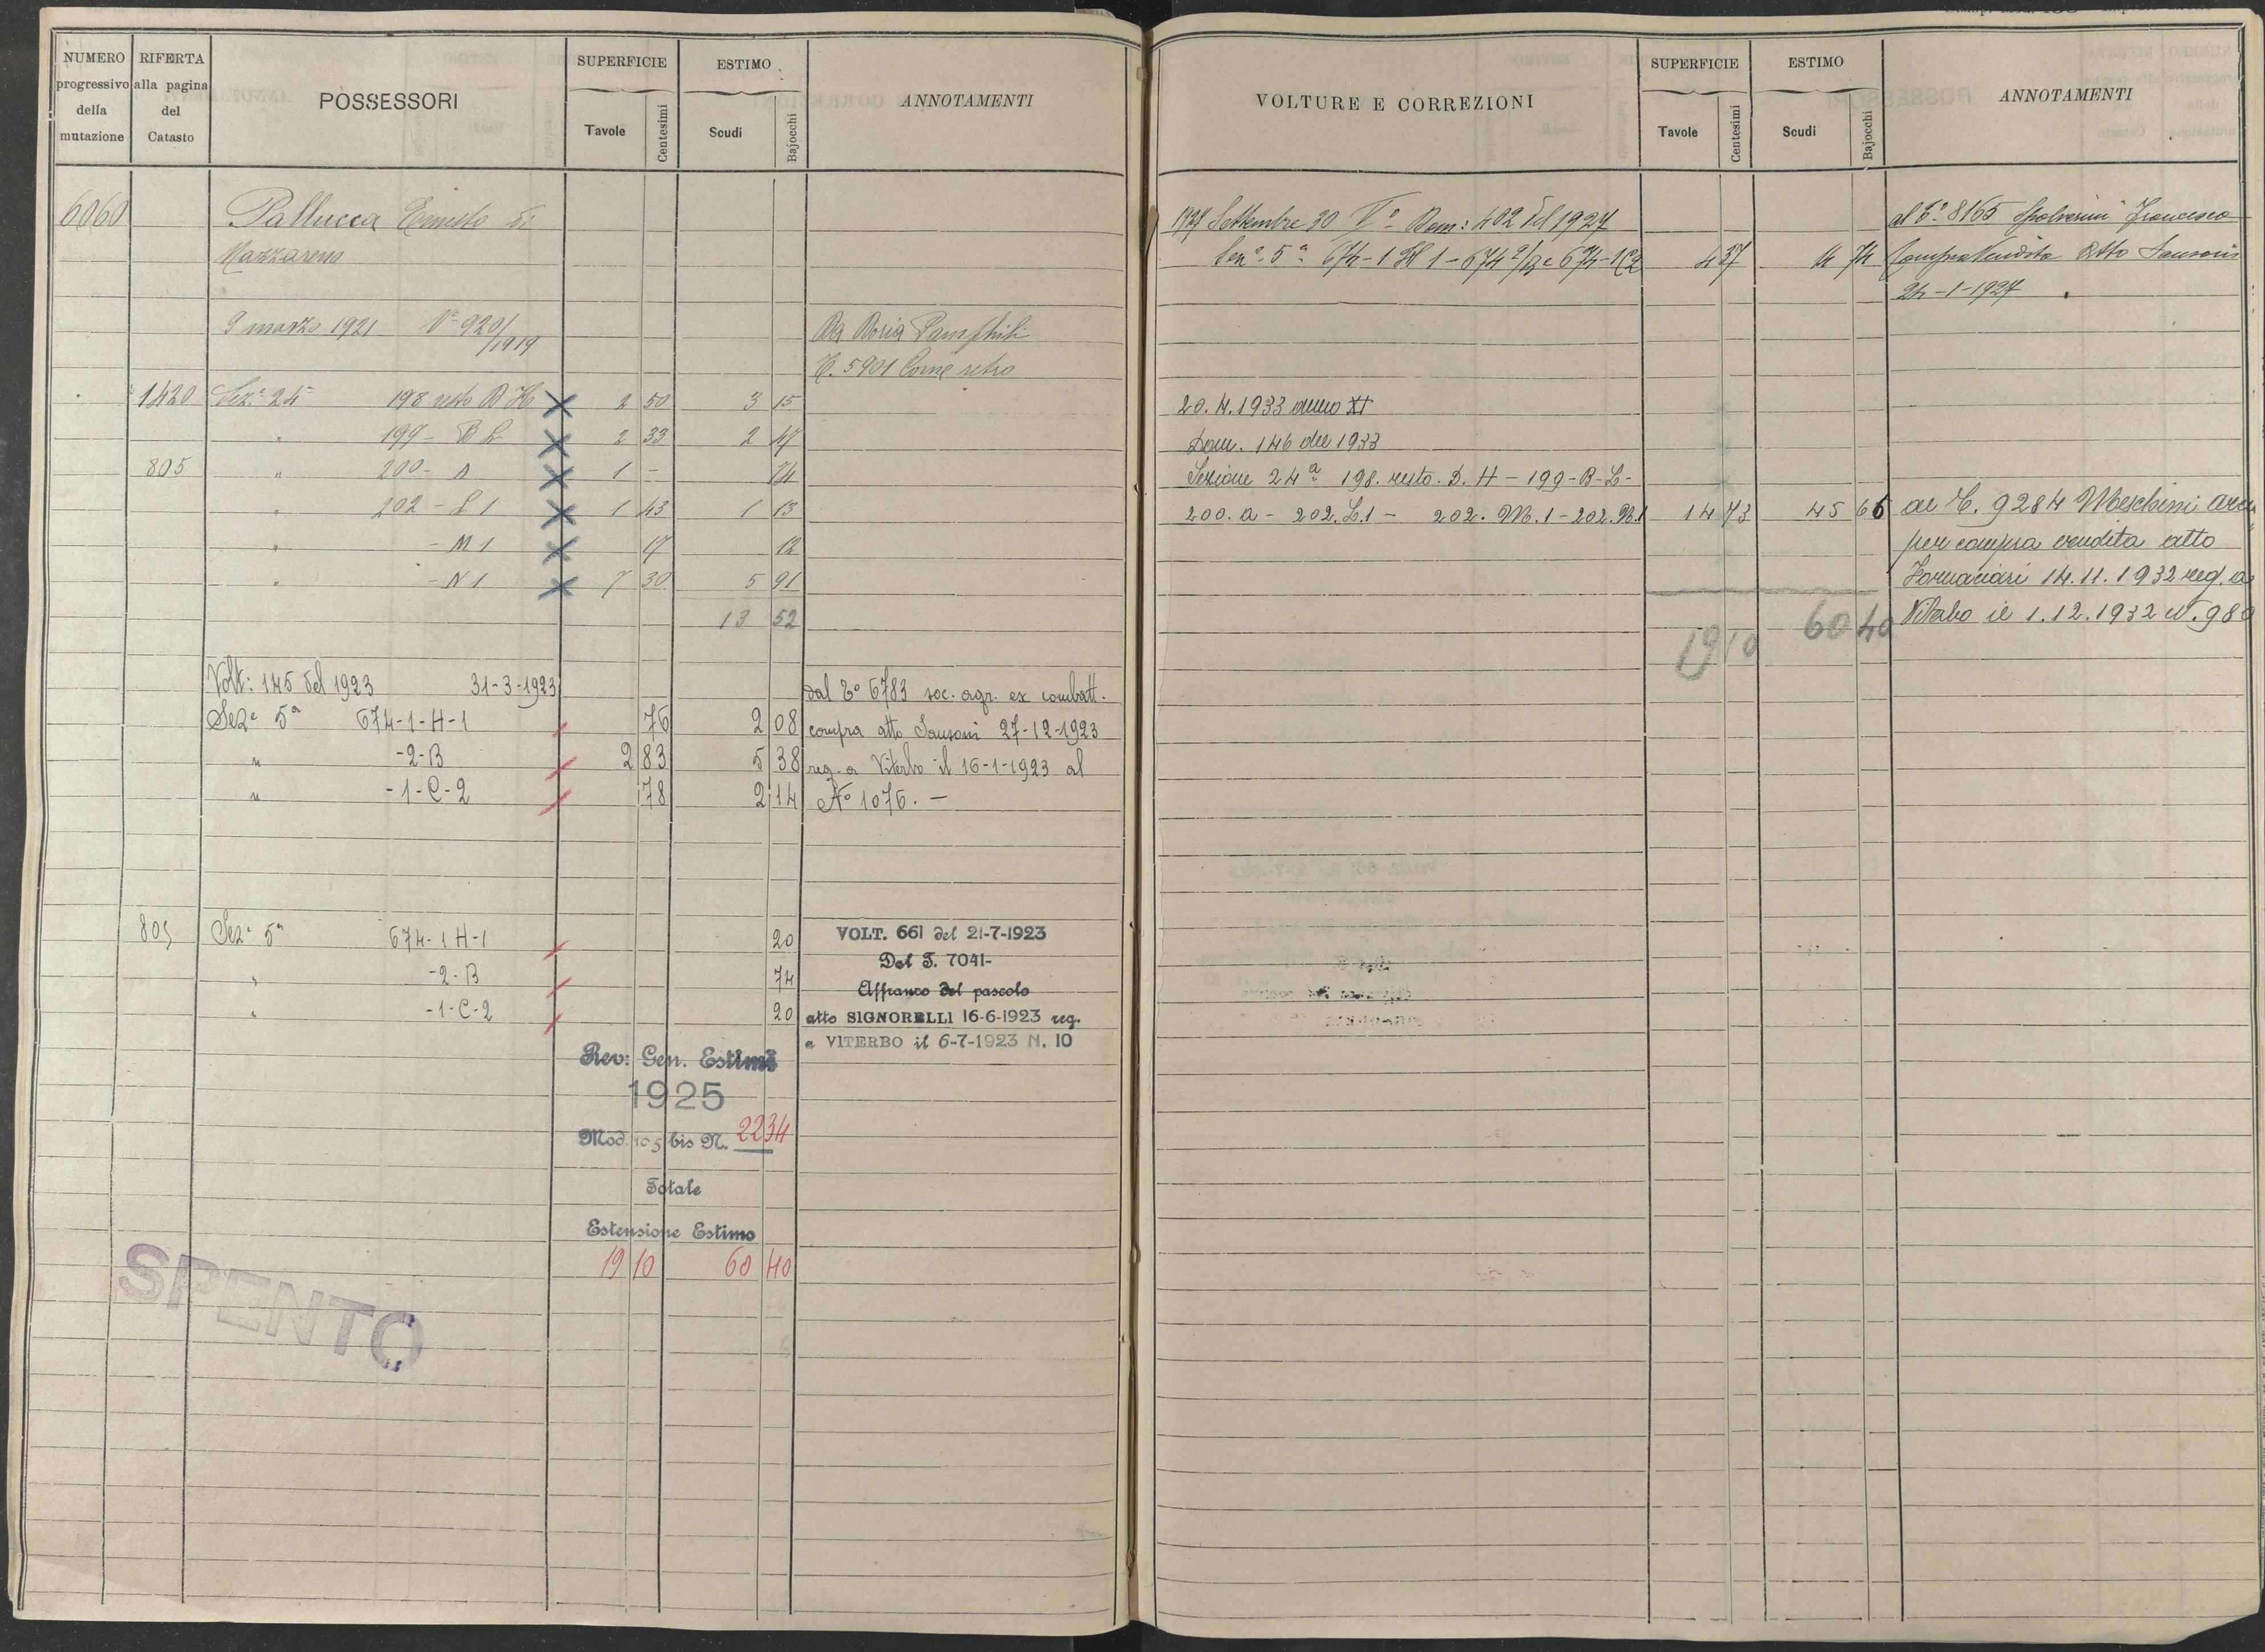 NUMERO progressivo della mutazione
RIFERTA alla pagina del Catasto
POSSESSORI
SUPERFICIE
Tavole Centesimi
ESTIMO
Scudi Bajocchi
ANNOTAMENTI
6060 Pallucca Ernesto di
Nazzareno
9 marzo 1921 Va 920/
/1919
Da Doria Pamphili
T. 5901 Come retro
1420 Sez. 24a 198 resto D H 2 50 3 15
" 199 - B L 2 33 2 47
805 " 200 - A 1 - 74
" 202 - L 1 1 43 1 13
" - M 1 17 12
" - N 1 7 30 5 91
13 52
Volt: 145 del 1923 31-3-1923 dal To 6783 soc. agr. ex combatt.
Seze 5a 674-1-H-1 76 2 08 compra atto Sansoni 27-12-1923
" -2-B 2 83 5 38 reg. a Viterbo il 16-1-1923 al
" -1-C-2 78 2 14 No 1076. -
805 Seze 5a 674-1 H-1 20 VOLT. 661 del 21-7-1923
Dal T. 7041-
" -2-B 74 Affranco del pascolo
" -1-C-2 20 atto SIGNORELLI 16-6-1923 reg.
a VITERBO il 6-7-1923 N. 10
Rev: Gen. Estimi
1925
Mod. 105 bis N. 2234
Totale
Estensione Estimo
19 10 60 40
SPENTO
VOLTURE E CORREZIONI
SUPERFICIE
Tavole Centesimi
ESTIMO
Scudi Bajocchi
ANNOTAMENTI
1927 Settembre 30 Va Dom: 402 del 1927 al To 8165 Spolverini Francesco
Seze 5a 674-1 H 1 - 674 2/B e 674-1C2 4 37 14 74 Compra Vendita Atto Sansoni
24-1-1927
20.4.1933 anno XI
Dom. 146 del 1933
Sezione 24a 198. resto. D. H - 199-B-L-
200. a - 202. L.1 - 202. M.1 - 202. N.1 14 73 45 66 al T. 9284 Meschini
per compra vendita atto
Fornaciari 14.11.1932 reg. a
Viterbo il 1.12.1932 N. 980
19 10 60 40